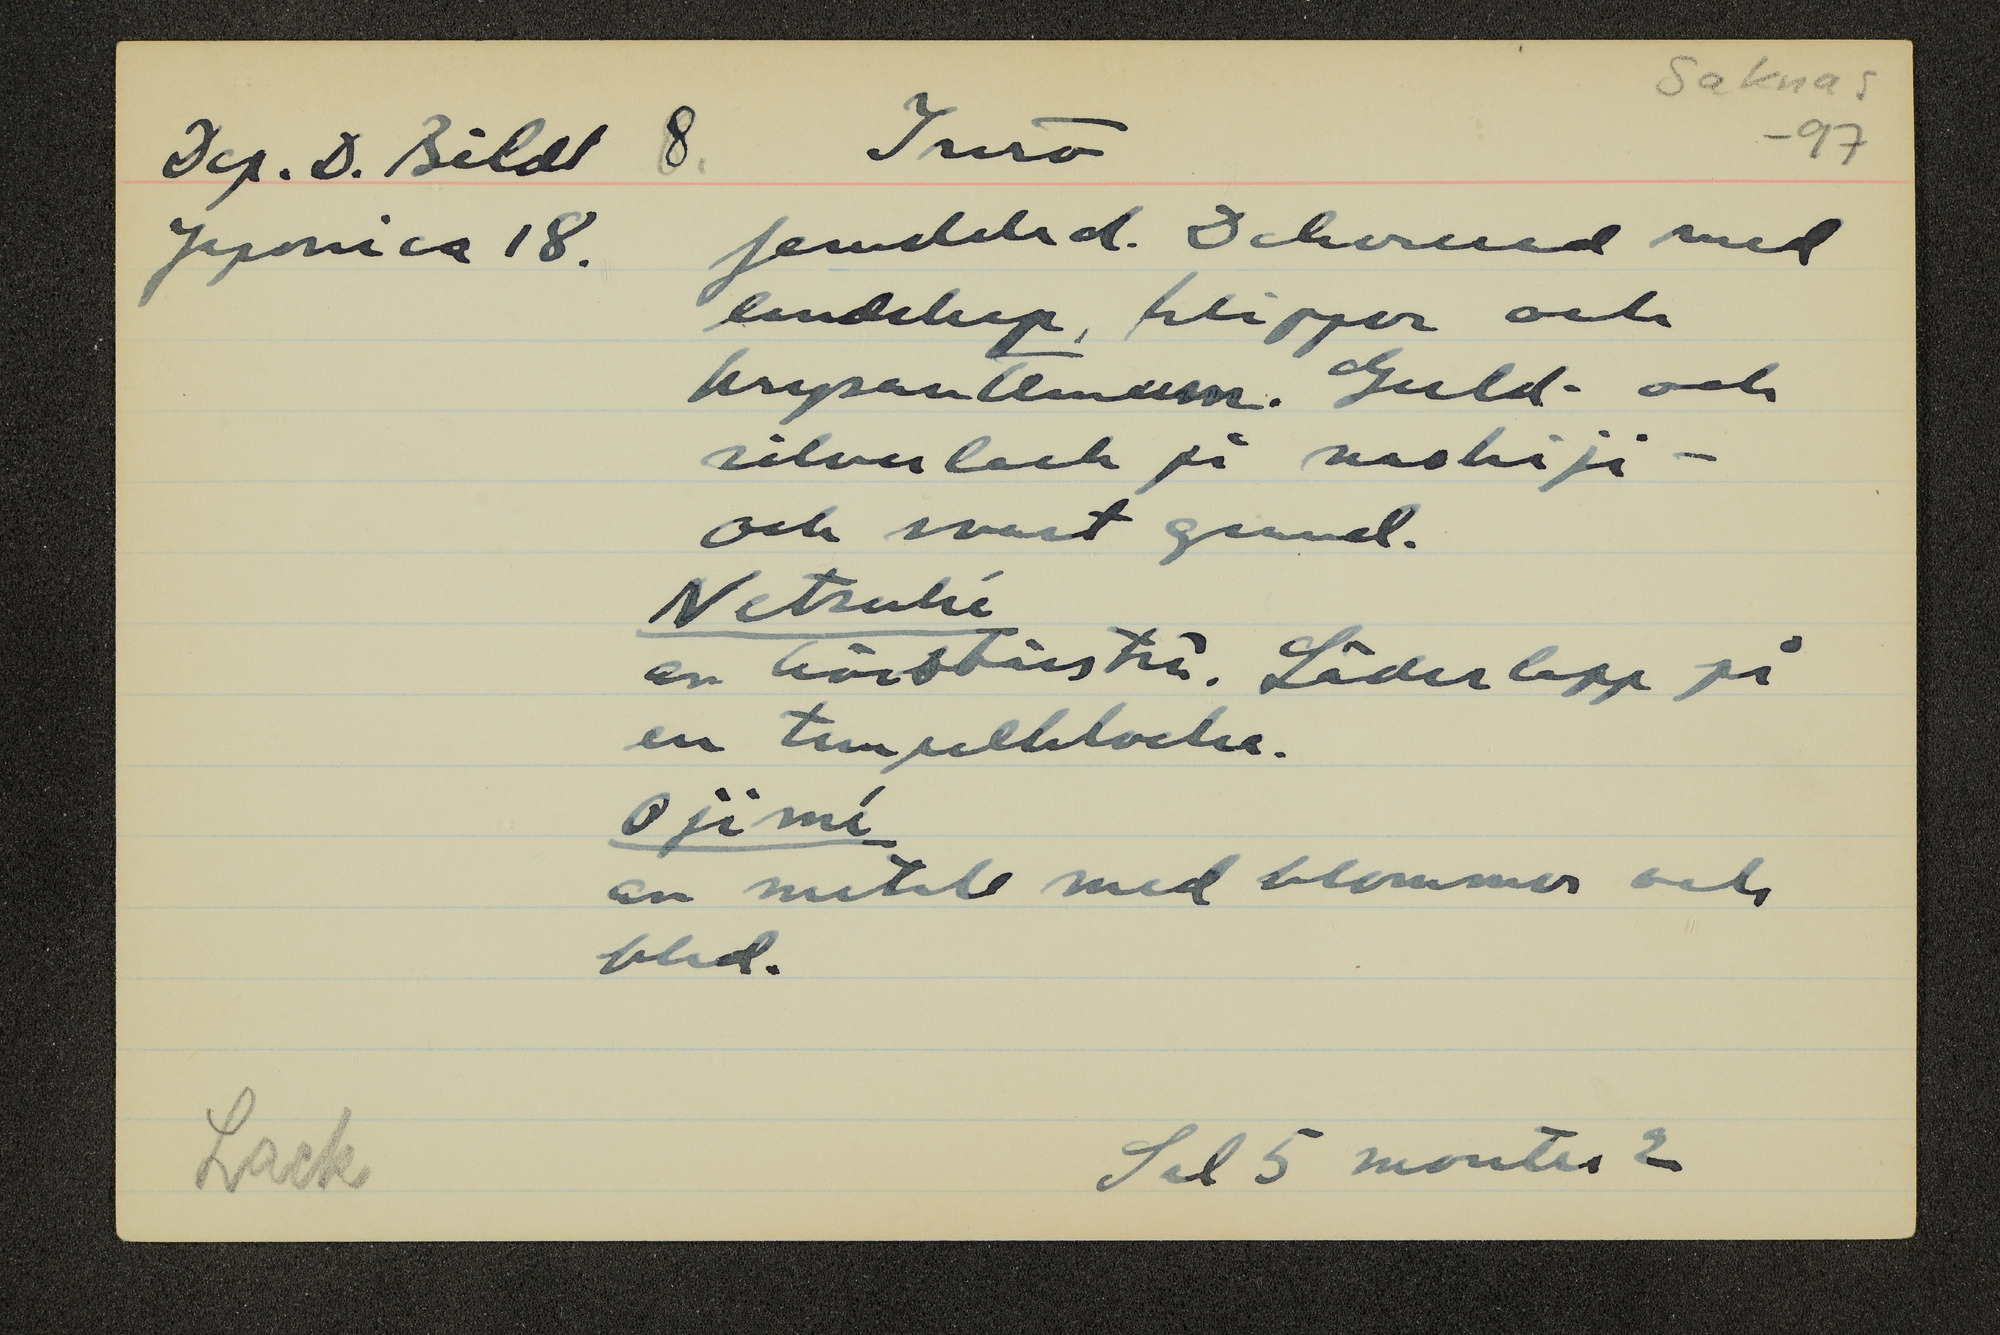 Saknas
-97
Dep. D. Bildt 8. Inrō
Japonica 18. femdelad. Dekorerad med
landskap, klippor och
krysantemum. Guld- och
silverlack på nashiji-
och svart grund.
Netsuké
av körsbärsträ. Läderlapp på
en tempelklocka.
Ojimé
av metall med blommor och
blad.
Lack
Sal 5 monter 2